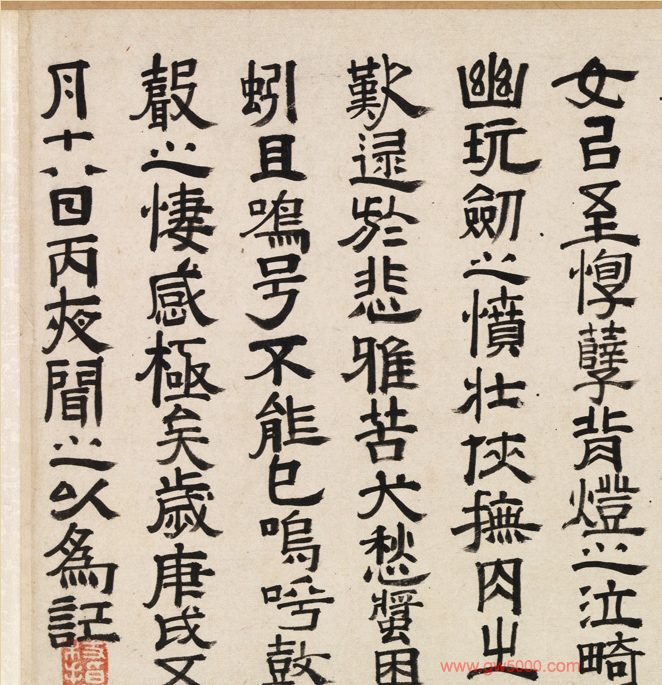 女已至惸孽背燈之泣畸
幽玩劒之憤壯俠撫肉㞢
歎逯於悲雅苦犬愁螿困
蚓且鳴号不能已嗚呼鼓
聲之悽感極矣歲庚戌又
月十八日丙夜聞之以為記
www.gw5000.com